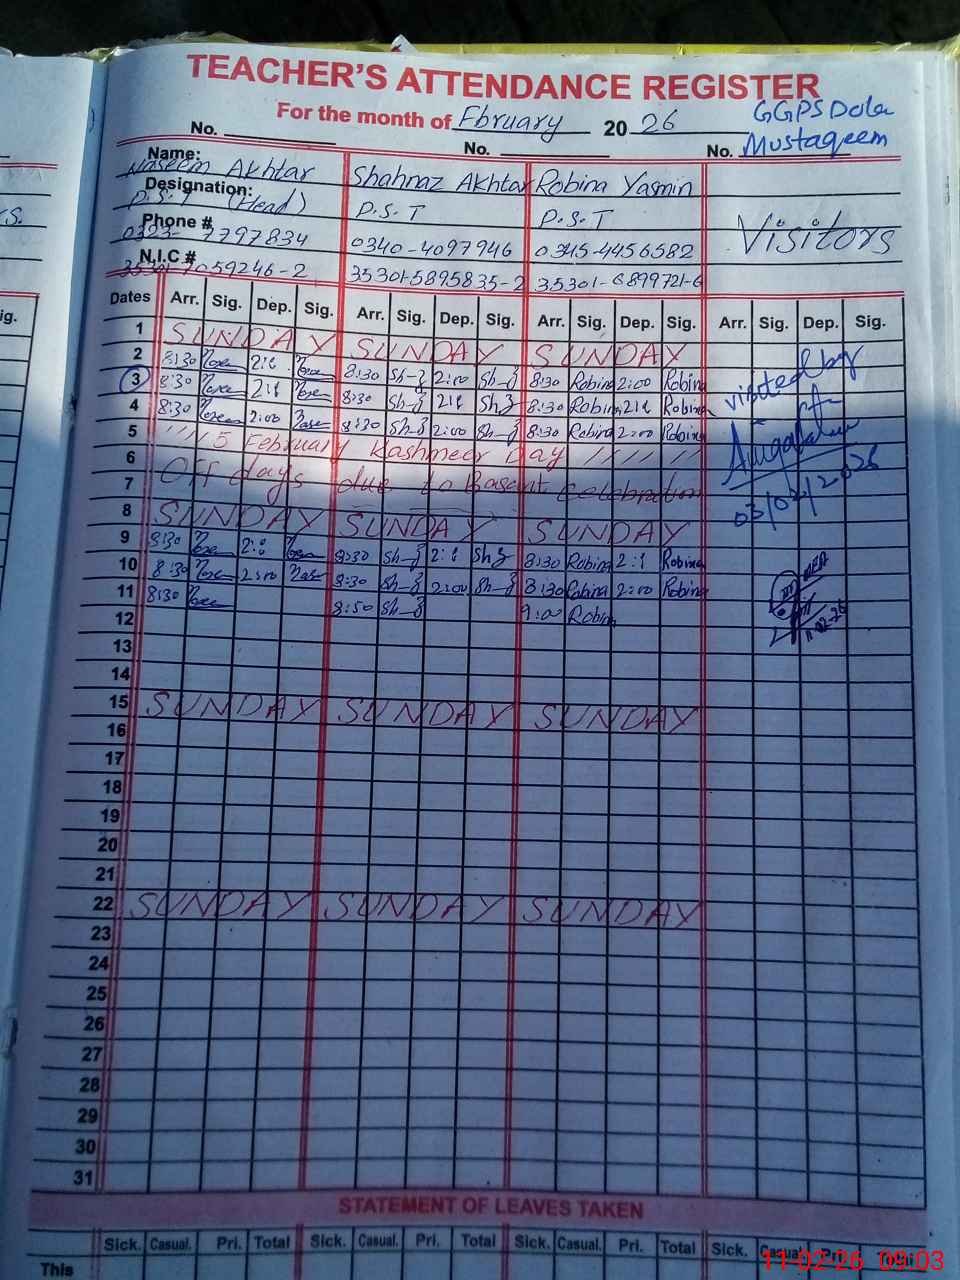 TEACHER'S ATTENDANCE REGISTER
For the month of Fbruary 20 26
GGPS Dola
Mustaqeem
No. No. No.
Name: Naseem Akhtar Shahnaz Akhtar Robina Yasmin
Designation: P.S.T (Head) P.S.T P.S.T
Visitors
Phone # 0323-7797834 0340-4097946 0345-4456582
N.I.C # 35301-7059246-2 35301-5895835-2 35301-6899721-6
Dates Arr. Sig. Dep. Sig. Arr. Sig. Dep. Sig. Arr. Sig. Dep. Sig. Arr. Sig. Dep. Sig.
1 SUNDAY SUNDAY SUNDAY
2 8:30 8:30 Sh-z 2:00 Sh-z 8:30 Robina 2:00 Robina
visited by
3 8:30 8:30 Sh-z Sh z 8:30 Robina Robina
4 8:30 2:00 8:30 Sh-z 2:00 Sh-z 8:30 Robina 2:00 Robina
5 5 February Kashmeer Day
6
7 Off days due to Basant celebration
03/02/2026
8 SUNDAY SUNDAY SUNDAY
9 8:30 8:30 Sh-z Sh z 8:30 Robina Robina
10 8:30 2:00 8:30 Sh-z 2:00 Sh-z 8:30 Robina 2:00 Robina
11 8:30 8:50 Sh-z 9:00 Robina
11-02-26
12
13
14
15 SUNDAY SUNDAY SUNDAY
16
17
18
19
20
21
22 SUNDAY SUNDAY SUNDAY
23
24
25
26
27
28
29
30
31
STATEMENT OF LEAVES TAKEN
Sick. Casual. Pri. Total Sick. Casual. Pri. Total Sick. Casual. Pri. Total Sick. Casual. Pri. Total
This
11-02-26 09:03